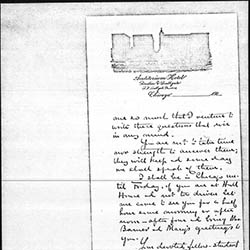 Auditorium Hotel
Chicago
me so much that I venture to
write these questions that rise
in my mind.
You are not to take time
nor strength to answer them;
they will keep and some day
we shall speak of them.
I shall be in Chicago un-
til Friday, if you are at Hull
House and not too driven let
me come to see you for a half
hour some morning or after-
noon - after four and bring the
Barnes and Mary's greetings to
you.
Your devoted fellow-student